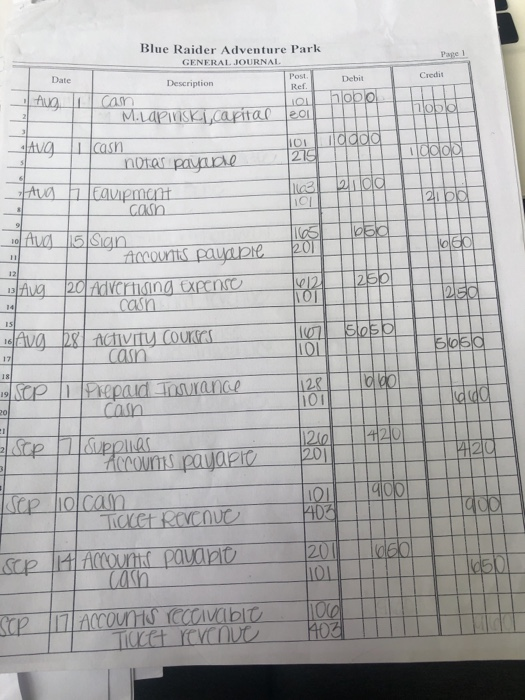 Blue Raider Adventure Park
GENERAL JOURNAL
Page 1
Date Description Post. Ref. Debit Credit
1 Aug 1 Cash 101 7000
2 M. Lapinski, capital 301 7000
4 Aug 1 cash 101 10000
5 notes payable 275 10000
6
7 Aug 7 Equipment 163 2100
8 cash 101 2100
9
10 Aug 15 Sign 165 650
11 Accounts payable 201 650
12
13 Aug 20 Advertising expense 612 250
14 cash 101 250
15
16 Aug 28 Activity Courses 167 5650
17 cash 101 5650
18
19 Sep 1 Prepaid Insurance 128 660
20 Cash 101 660
Sep 7 Supplies 126 420
Accounts payable 201 420
Sep 10 cash 101 900
Ticket Revenue 403 900
Sep 14 Accounts payable 201 650
Cash 101 650
Sep 17 Accounts receivable 106
Ticket revenue 403